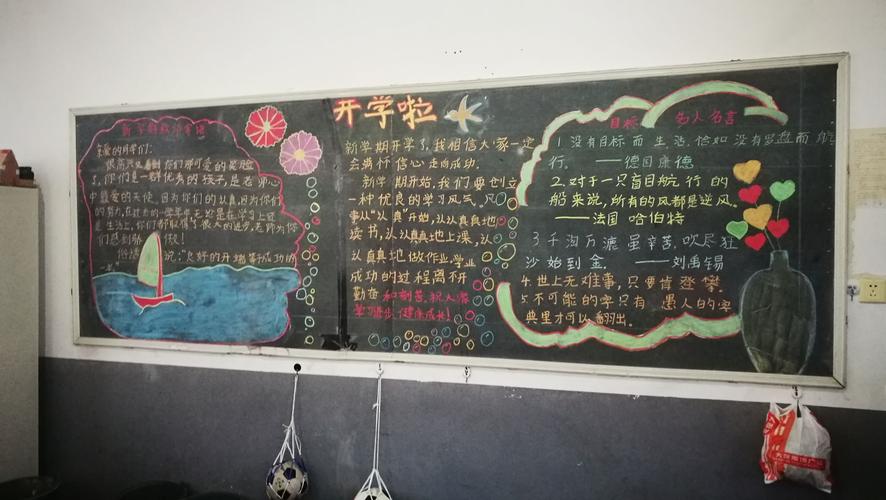 开学啦
亲爱的同学们:
很高兴又看到你们那可爱的笑脸
了,你们是一群优秀的孩子,是老师心
中最爱的天使,因为你们的认真,因为你们
的努力,在过去的一学年中无论是在学习上还
是生活上,你们都取得了很大的进步,老师为你
们感到骄傲!
俗话说:"良好的开端等于成功的
一半
新学期开学了,我相信大家一定
会满怀信心走向成功.
新学期开始,我们要创立
一种优良的学习风气,凡
事从"认真"开始,认认真真地
读书,认认真真地上课,认
认真真地做作业,学业
成功的过程离不开
勤奋和刻苦,祝大家
学习进步,健康成长!
目标 名人名言
1 没有目标而生活,恰如没有罗盘而航
行. ——德国康德
2.对于一只盲目航行的
船来说,所有的风都是逆风。
——法国 哈伯特
3 千淘万漉虽辛苦,吹尽狂
沙始到金. ——刘禹锡
4.世上无难事,只要肯登攀.
5.不可能的字只有愚人的字
典里才可以翻出。